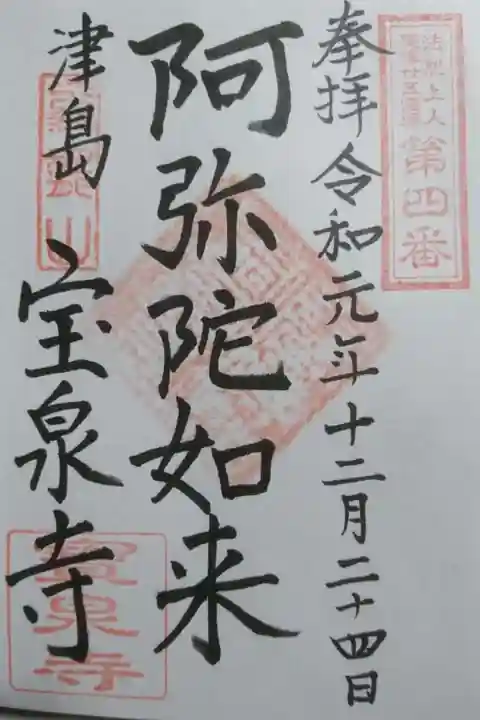 法然上人
第四番
奉拝 令和元年十二月二十四日
阿弥陀如来
津島 宝泉寺
寶泉寺